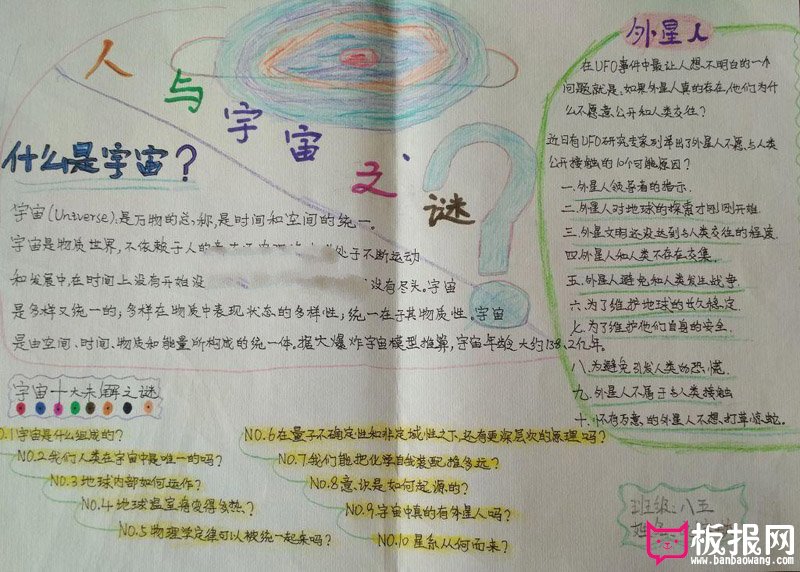 人与宇宙之谜
什么是宇宙?
宇宙(Universe)是万物的总称,是时间和空间的统一。
宇宙是物质世界,不依赖于人的
处于不断运动
和发展中,在时间上没有开始没
没有尽头。宇宙
是多样又统一的;多样在物质中表现状态的多样性;统一在于其物质性。宇宙
是由空间、时间、物质和能量所构成的统一体。据大爆炸宇宙模型推算,宇宙年龄大约138.2亿年。
宇宙十大未解之谜
NO.1宇宙是什么组成的?
NO.2我们人类在宇宙中是唯一的吗?
NO.3地球内部如何运作?
NO.4地球温室将变得多热?
NO.5物理学定律可以被统一起来吗?
NO.6在量子不确定性和非定域性之下,还有更深层次的原理吗?
NO.7我们能把化学自我装配推多远?
NO.8意识是如何起源的?
NO.9宇宙中真的有外星人吗?
NO.10星系从何而来?
外星人
在UFO事件中最让人想不明白的一个
问题就是,如果外星人真的存在,他们为什
么不愿意公开和人类交往?
近日有UFO研究专家列举出了外星人不愿与人类
公开接触的10个可能原因?
一.外星人领导者的指示.
二.外星人对地球的探索才刚刚开始
三.外星文明还没达到与人类交往的程度.
四.外星人和人类不存在交集.
五.外星人避免和人类发生战争.
六.为了维护地球的长久稳定.
七.为了维护他们自身的安全.
八.为避免引发人类的恐慌.
九.外星人不属于与人类接触
十.怀有歹意的外星人不想打草惊蛇.
班级:八五
姓名:
板报网
www.banbaowang.com